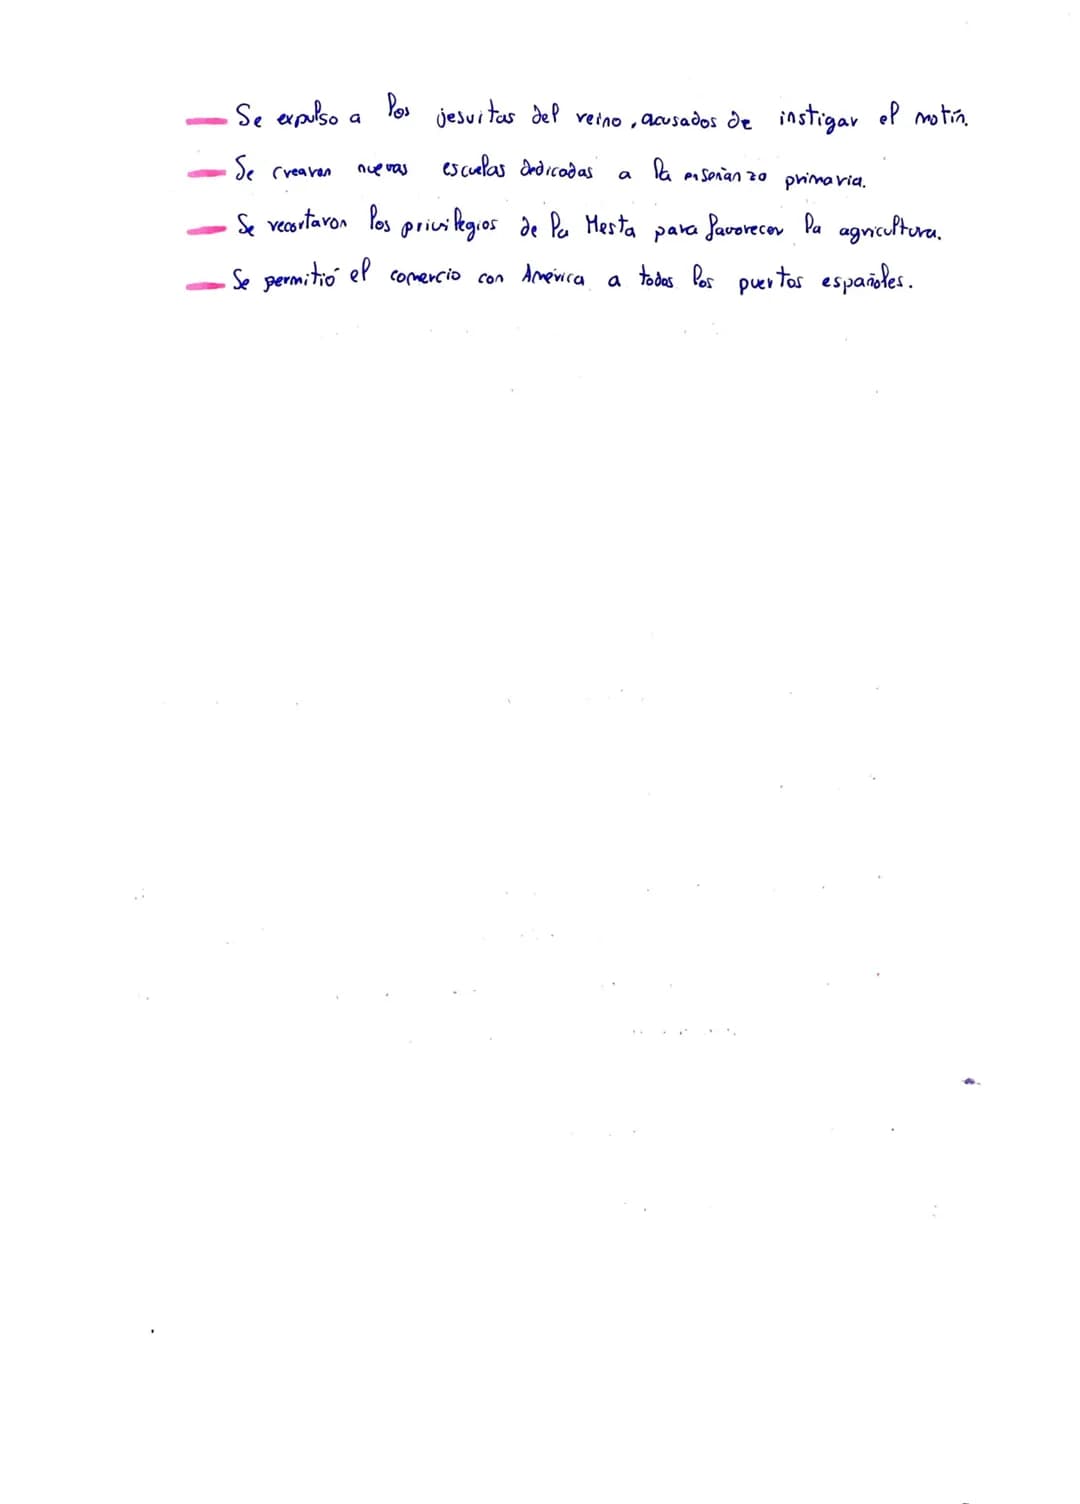 — Se expulso a los jesuitas del reino, acusados de instigar el motín.
— Se crearon nuevas escuelas dedicadas a la enseñanza primaria.
— Se recortaron los privilegios de la Mesta para favorecer la agricultura.
— Se permitió el comercio con América a todos los puertos españoles.